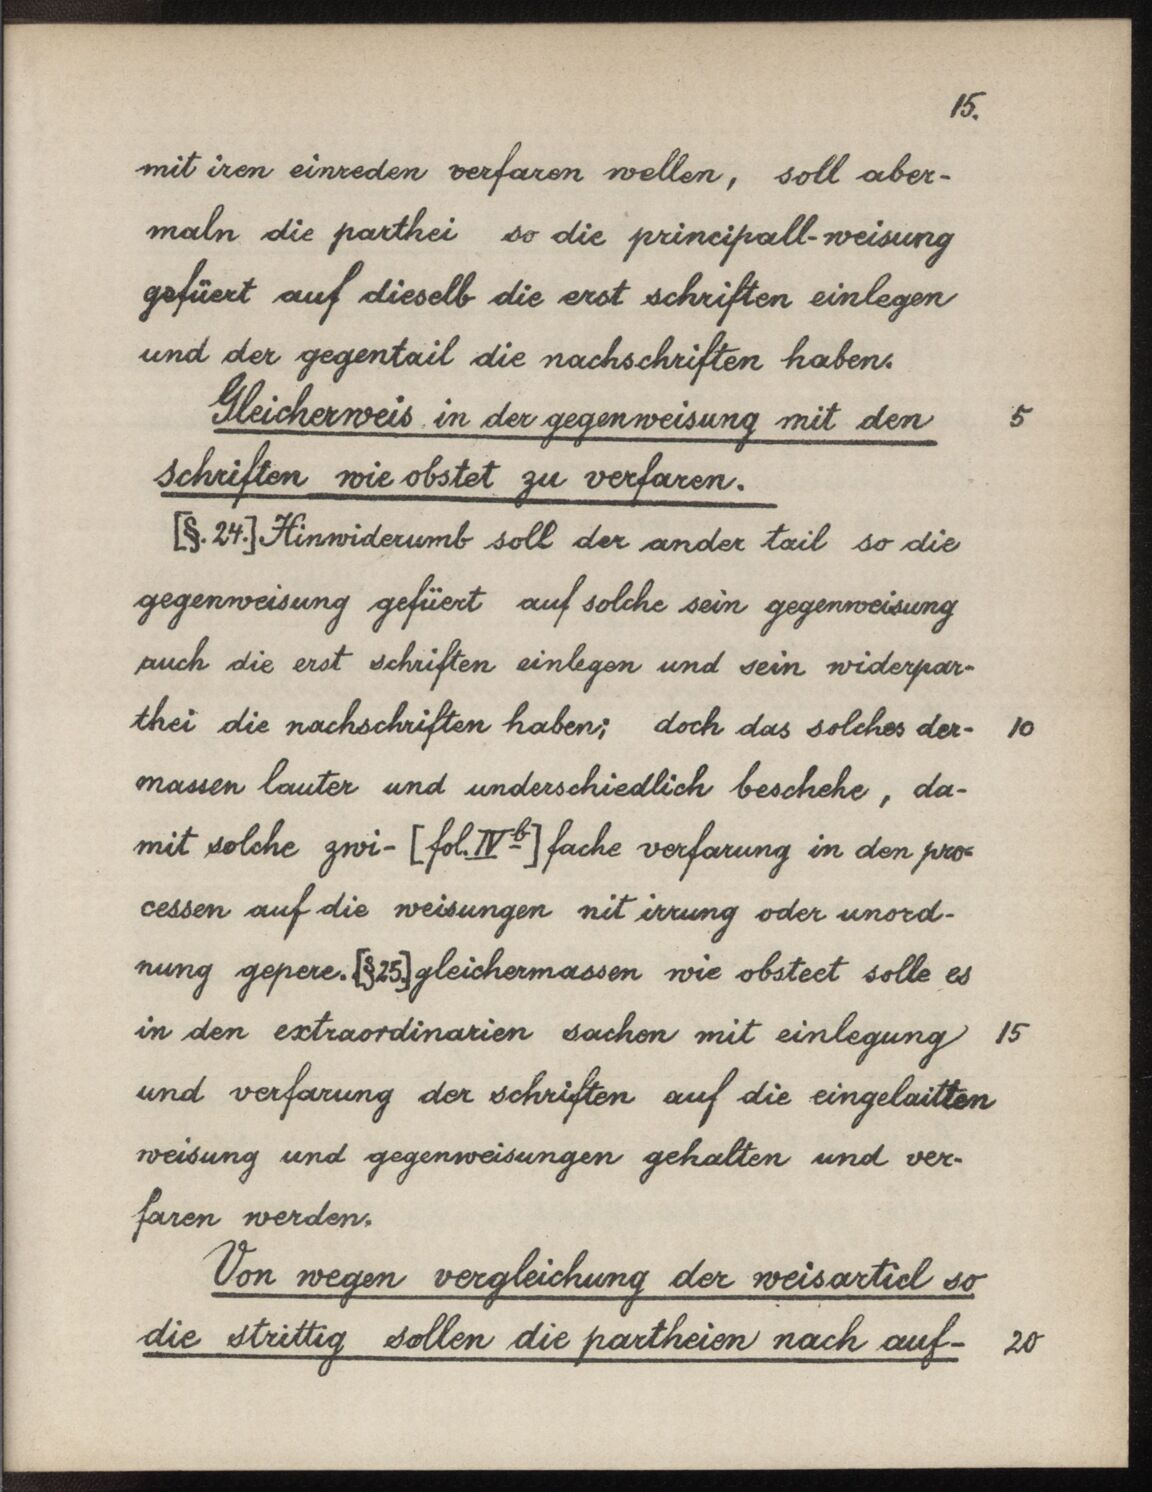 15.
mit iren einreden verfaren wellen, soll aber-
maln die parthei so die principall-weisung
gefüert auf dieselb die erst schriften einlegen
und der gegentail die nachschriften haben.
Gleicherweis in der gegenweisung mit den 5
schriften wie obstet zu verfaren.
[§. 24.] Hinwiderumb soll der ander tail so die
gegenweisung gefüert auf solche sein gegenweisung
auch die erst schriften einlegen und sein widerpar-
thei die nachschriften haben; doch das solches der- 10
massen lauter und underschiedlich beschehe, da-
mit solche zwi- [fol. IVb] fache verfarung in den pro-
cessen auf die weisungen nit irrung oder unord-
nung gepere. [§25.] gleichermassen wie obsteet solle es
in den extraordinarien sachen mit einlegung 15
und verfarung der schriften auf die eingelaitten
weisung und gegenweisungen gehalten und ver-
faren werden.
Von wegen vergleichung der weisarticl so
die strittig sollen die partheien nach auf- 20